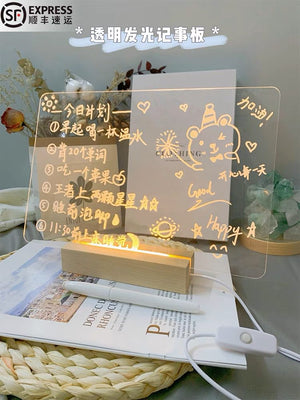 SF EXPRESS
顺丰速运
* 透明发光记事板 *
今日计划
①早起喝一杯温水
②背20个单词
③吃一个苹果
④王者上两颗星星
⑤睡前泡脚
⑥11:30前上床睡觉
加油!
开心每一天
Good
Happy